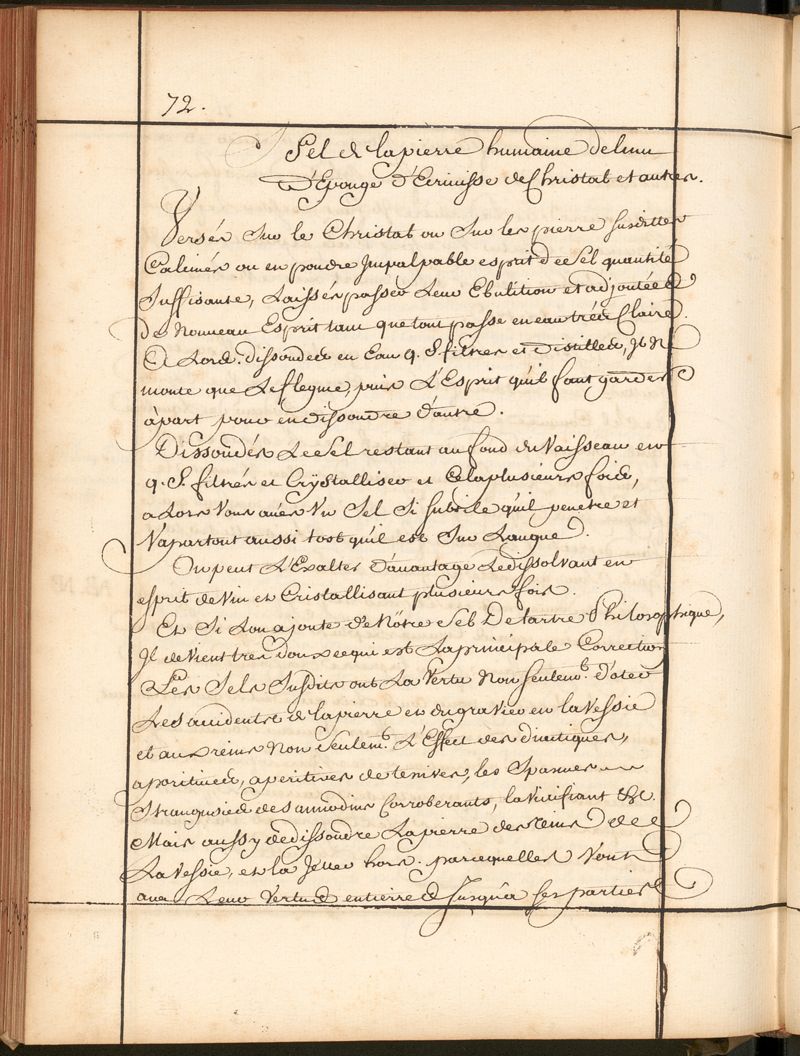 72.
Sel de la pierre humaine de linu
D'Eponge d'Ecrivisse de Christal et autres.
Versés Sur le Christal ou Sur les pierre susdittes
Calcinés ou en poudre Impalpable esprit de Sel quantité
Suffisante, Laissés passer Leur Ebulition et adjoutée
de Nouveau Esprit tant que tout passe en eau trés Claire.
A Lors dissoudes en Eau q. S. filtres et Distilles, Il Ne
monte que Le flegme, puis L'Esprit qu'il faut garder
à part pour en dissoudre d'autre.
Dissoudés Le Sel restant au fond du Vaisseau en
q. S. filtrés et Crystalliser et Cela plusieurs fois,
a Lors Vous avés Un Sel Si subtile qu'il penetre et
Va partout aussi tost qu'il est Sur Langue.
On peut L'Exalter D'avantage Le dissolvant en
esprit de Vin et Cristallisant plusieurs fois.
Et Si Lon ajoute de Nôtre Sel De tartre Philosophique,
Il devient tres doux ce qui est La principale Correction
Les Sels Susdits ont La Vertu Non Seulem.t d'oter
Les accidents de la pierre et du gravier en la Vessie
et aux reins Non Seulem.t L'Effect des diuretiques,
aperitives de lenives, les Spasmes
Strangurie des annodins Corroberants, la Vivifiant &c.
Mais aussy de dissoudre La pierre des reins de
La Vessie, et la Jetter hors. parcequelles Vont
avec Leur Vertu entierre Jusqu'a ses parties